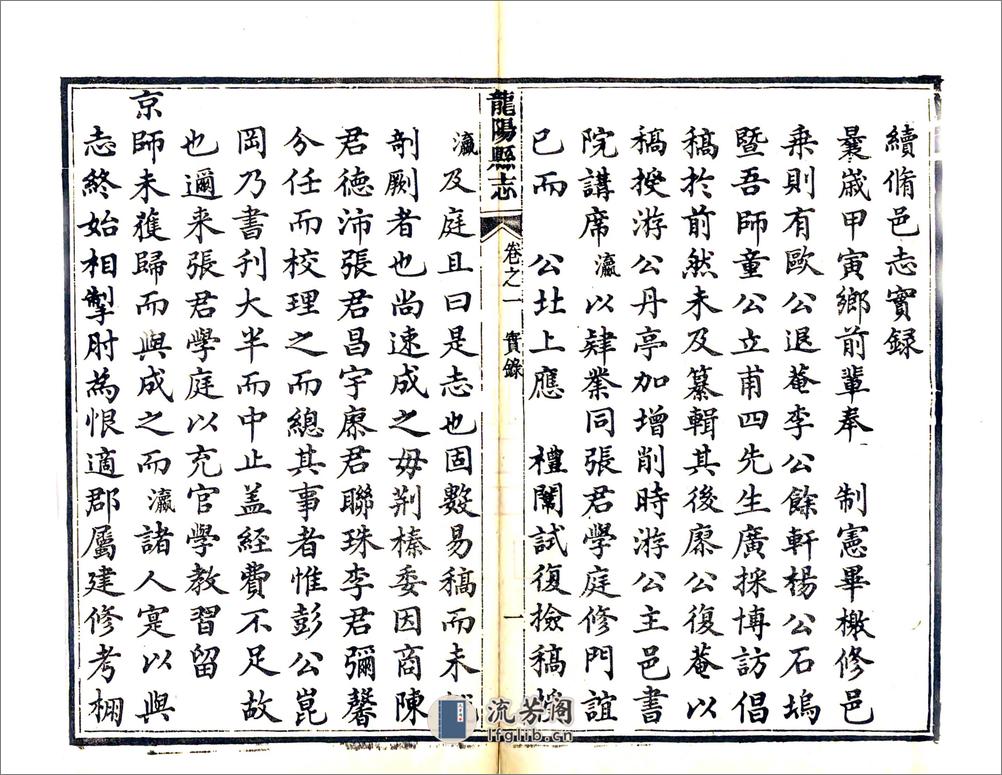 續脩邑志實録
曩嵗甲寅鄉前軰奉　制憲畢檄修邑
乗則有歐公退菴李公餘軒楊公石塢
暨吾師童公立甫四先生廣採博訪倡
稿於前然未及纂輯其後廖公復菴以
稿授游公丹亭加增削時游公主邑書
院講席瀛以肄業同張君學庭修門誼
已而　公北上應　禮闈試復檢稿授
龍陽縣志
卷之一　實錄
一
瀛及庭且曰是志也固數易稿而未
剞劂者也尚速成之毋荆榛委因商陳
君德沛張君昌宇廖君聯珠李君彌馨
分任而校理之而總其事者惟彭公崑
岡乃書刋大半而中止盖經費不足故
也邇来張君學庭以充官學教習留
京師未獲歸而與成之而瀛諸人寔以與
志終始相掣肘為恨適郡屬建修考棚
流芳阁
lfglib.cn